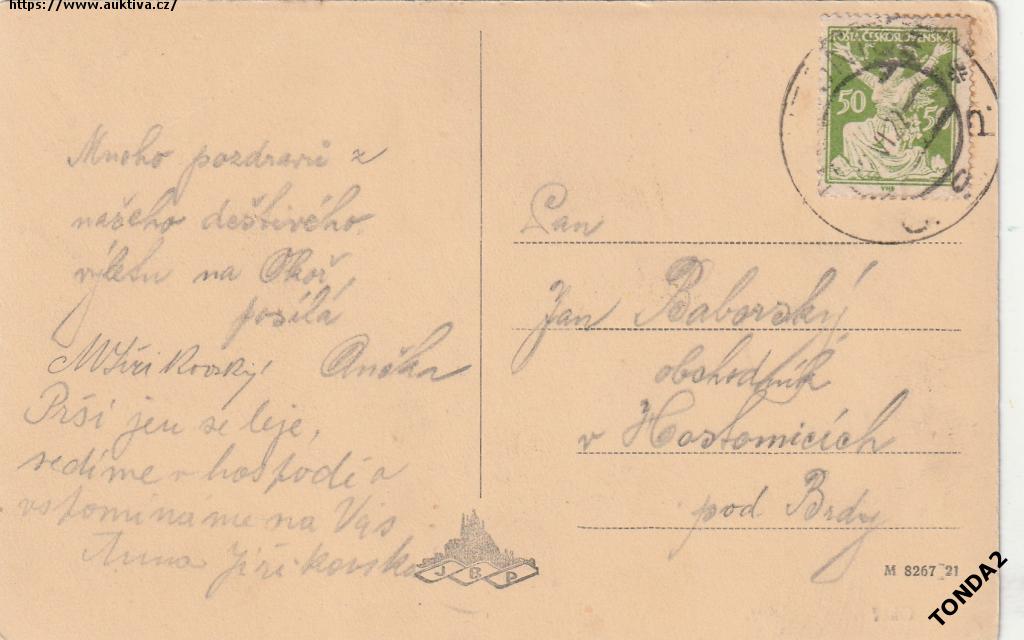 https://www.auktiva.cz/
POŠTA ČESKOSLOVENSKÁ
50 50
Mnoho pozdravů z
našeho deštivého
výletu na Okoř
posílá
MJiřikovský, Anička
Prší jen se leje,
sedíme v hospodě a
vstomínáme na Vás
Anna Jiřikovská
Pan
Jan Baborský
obchodník
v Hostomicích
pod Brdy
J B P
M 8267 21
TONDA2